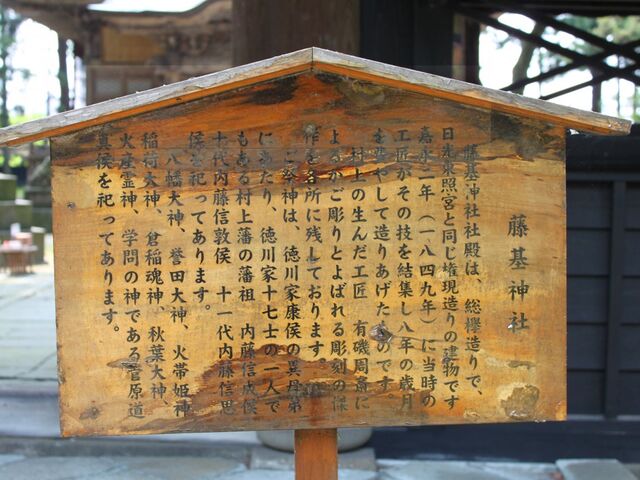 藤基神社
藤基神社社殿は、総欅造りで、
日光東照宮と同じ権現造りの建物です
嘉永二年（一八四九年）に当時の
工匠がその技を結集し八年の歳月
を費やして造りあげたものです。
村上の生んだ工匠 有磯周斎に
よるかご彫りとよばれる彫刻の傑
作を各所に残しております。
ご祭神は、徳川家康侯の異母弟
にあたり、徳川家十七士の一人で
もある村上藩の藩祖 内藤信成侯
十代内藤信敦侯 十一代内藤信思
侯を祀ってあります。
八幡大神、誉田大神、火帯姫神
稲荷大神、倉稲魂神、秋葉大神、
火産霊神、学問の神である菅原道
真侯を祀ってあります。